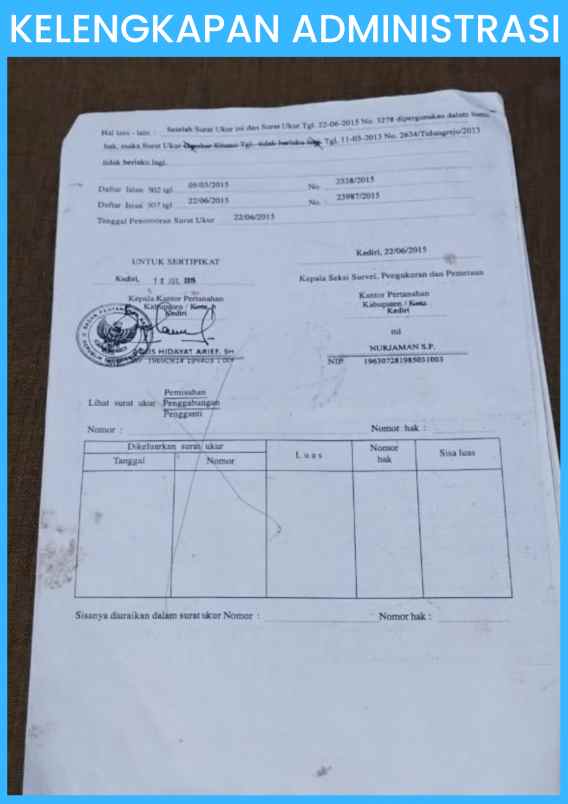 KELENGKAPAN ADMINISTRASI
Hal lain - lain : Setelah Surat Ukur ini dan Surat Ukur Tgl. 22-06-2015 No. 3278 dipergunakan dalam buku
hak, maka Surat Ukur Gambar Situasi Tgl. tidak berlaku lagi. Tgl. 11-03-2013 No. 2634/Tulungrejo/2013
tidak berlaku lagi.
Daftar Isian 302 tgl 09/03/2015 No. 2528/2015
Daftar Isian 307 tgl 22/06/2015 No. 23987/2015
Tanggal Penomoran Surat Ukur 22/06/2015
Kediri, 22/06/2015
UNTUK SERTIFIKAT
Kepala Seksi Survei, Pengukuran dan Pemetaan
Kediri,
Kepala Kantor Pertanahan
Kabupaten / Kota
Kediri
Kantor Pertanahan
Kabupaten / Kota
Kediri
ttd
HIDAYAT ARIEF, SH
NURJAMAN S.P.
NIP. 196307281985031003
Pemisahan
Lihat surat ukur Penggabungan
Pengganti
Nomor : Nomor hak :
Dikeluarkan surat ukur
Tanggal Nomor Luas Nomor hak Sisa luas
Sisanya diuraikan dalam surat ukur Nomor : Nomor hak :